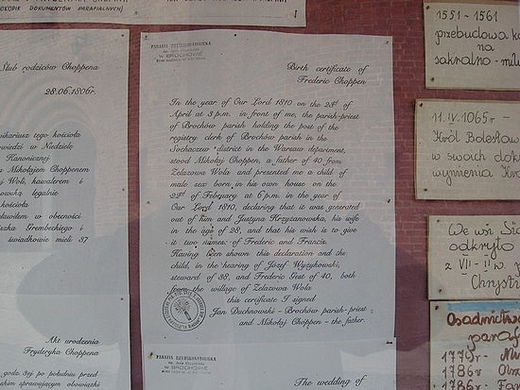 KOPIK DOKUMENTÓW PARAFIALNYCH)
Ślub rodziców Choppena
28.06.1806r.
tego kościoła
w Niedzielę
Kanonicznej
Mikołajem Choppenem
Woli, kawalerem i
legalnie
kościoła
w obecności
Grembeckiego i
świadkowie mieli 37
Akt urodzenia
Fryderyka Choppena
po południu przed
obowiązki
W BROCHOWIE
Birth certificate of
Frederic Choppen
In the year of Our Lord 1810 on the 23rd of
April at 3 p.m. in front of me, the parish-priest
of Brochów parish holding the post of the
registry clerk of Brochów parish in the
Sochaczew district in the Warsaw department,
stood Mikołaj Choppen, a father of 40 from
Żelazowa Wola and presented me a child of
male sex born in his own house on the
22nd of February at 6 p.m. in the year of
Our Lord 1810, declaring that it was generated
out of him and Justyna Krzyżanowska, his wife
in the age of 28, and that his wish is to give
it two names: of Frederic and Francis.
Having been shown this declaration and the
child, in the hearing of Józef Wyżykowski,
steward of 38, and Frederic Gest of 40, both
from the village of Żelazowa Wola
this certificate I signed
Jan Duchnowski - Brochów parish-priest
and Mikołaj Choppen - the father.
The wedding of
1551 - 1561
przebudowa
na
sakralno -
11. IV. 1065r -
Król Bolesław
w swoich
wymienia
We wsi
odkryto
z VII - w.
Osadnictwo
1770r -
1786r
1786r